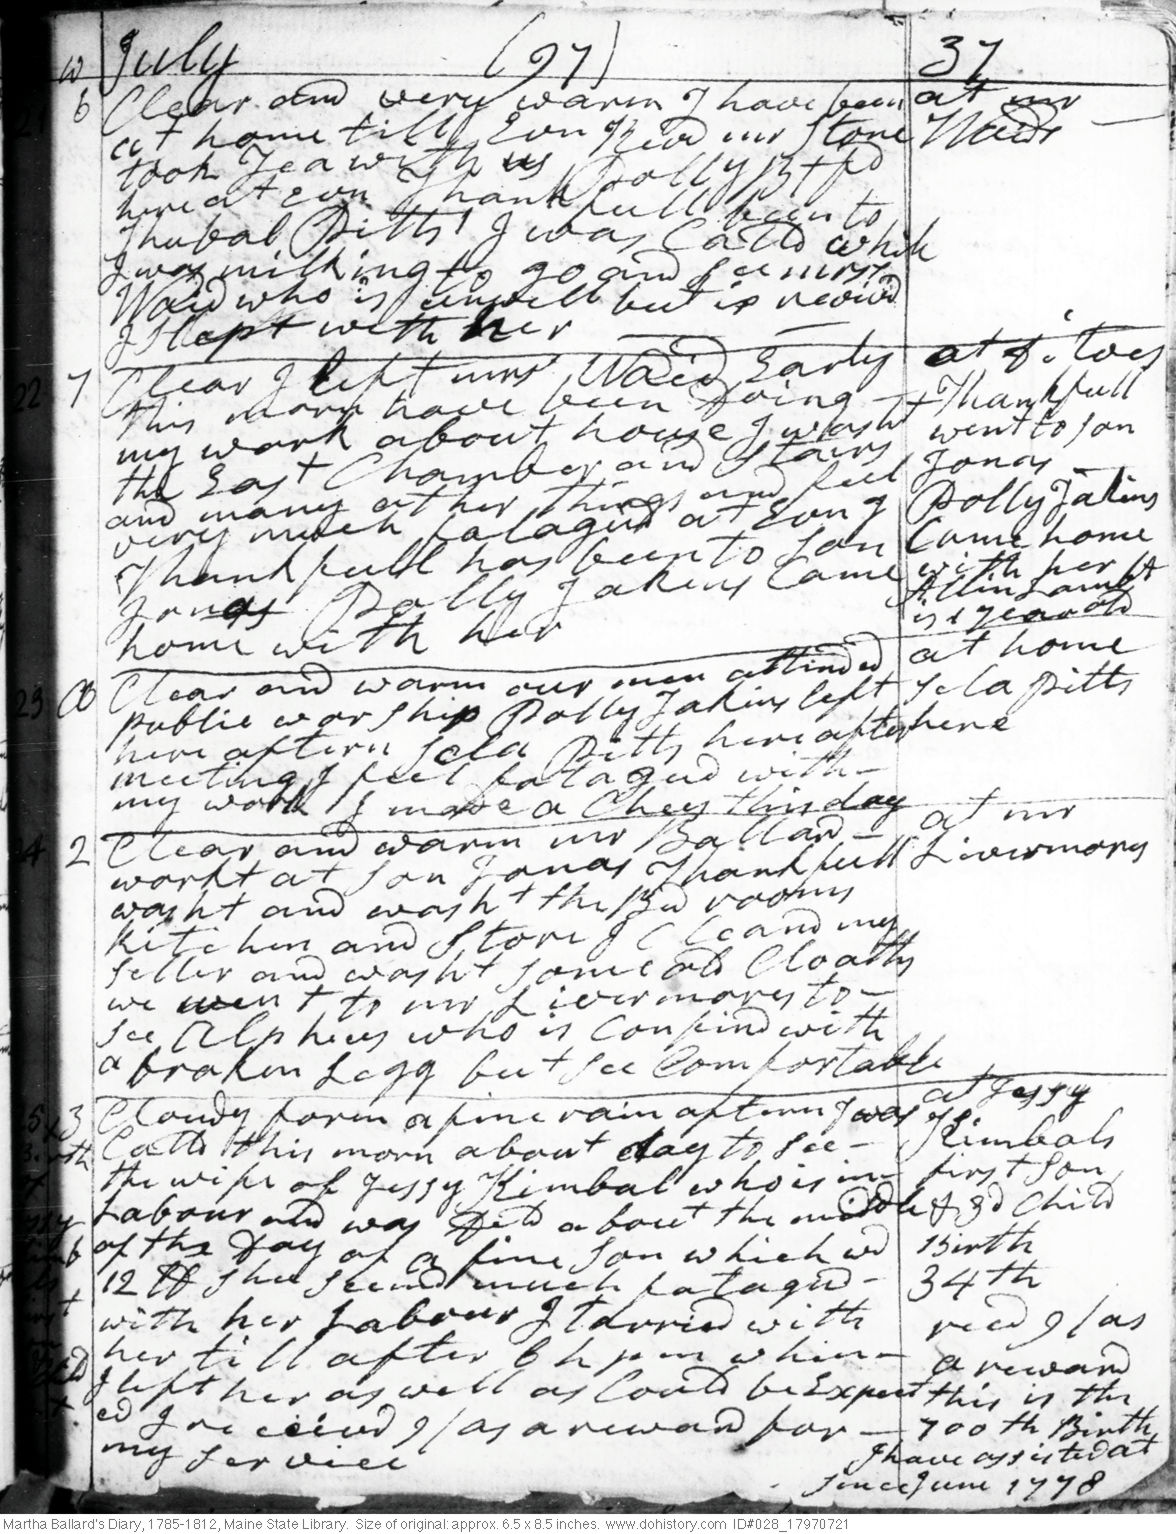 w July (97) 37
21 6 Clear and very warm I have been at mr
at home till Evng Revd mr Stone Waids
took Tea with us Dolly Bt fd
here at Evn Thankfull been to
Shubal Pitts' I was Calld while
I was milking to go and see mrs
Waid who is unwell but is revivd
I Slept with her
22 7 Clear I left mrs Waid Early at ditoes
this morn have been Doing Thankfull
my work about house I washt went to son
the East Chamber and Stairs Jonas
and many other things and feel Dolly Jakins
very much fatagud at Evng Came home
Thankfull has been to son with her
Jonas Dolly Jakins Came Allin Lamb
home with her is 1 year old
23 Clear and warm our men attinded at home
public worship Dolly Jakins left Sela Pitts
here aftern Sela Pitts here after here
meeting I feel fatagud with
my work I made a Chees this day
24 2 Clear and warm mr Ballard at mr
workt at son Jonas Thankfull Livermores
washt and washt the Bd rooms
Kitchen and Store I Cleand my
seller and washt some old Cloaths
we went to mr Livermores to
see Alpheus who is Confind with
a braken Legg but see Comfortable
5 3 Cloudy forn a fine rain aftern I was at Jessy
Calld this morn about day to see Kimbals
the wife of Jessy Kimbal who is in first son
Labour and was Deld about the middle & 3d Child
of the Day of a fine son which wd Birth
12 lb she seemd much fatagud 34th
with her Labour I tarried with recd 9/ as
her till after 6 h pm when a reward
I left her as well as Could be Expect this is the
ed I receivd 9/ as a reward for 700th Birth
my Service I have assisted at
since June 1778
Martha Ballard's Diary, 1785-1812, Maine State Library. Size of original: approx. 6.5 x 8.5 inches. www.dohistory.com ID#028_17970721